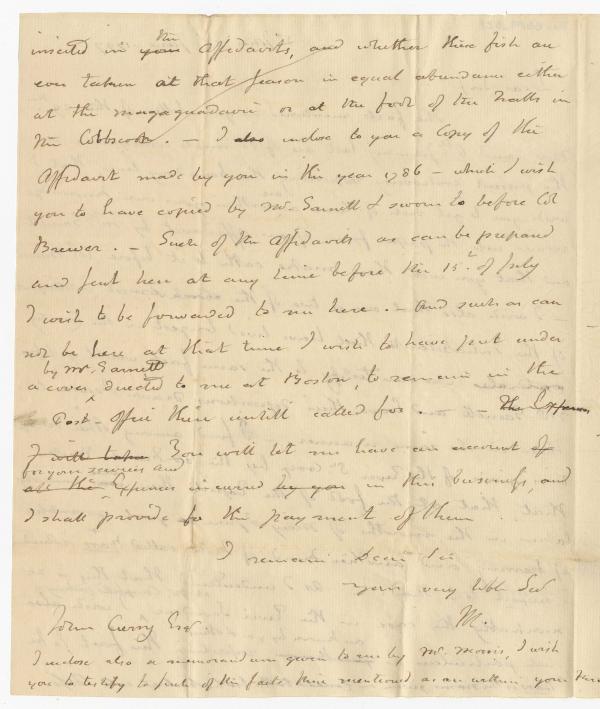 the
inserted in your Affidavits, and whether these fish are
ever taken at that season in equal abundance either
at the magaguadavic or at the foot of the Falls in
the Cobbscook. — I also inclose to you a Copy of the
Affidavit made by you in the year 1786 — which I wish
you to have copied by Mr. Garnett & sworn to before Col
Brewer. — Such of the Affidavits as can be prepared
and sent here at any time before the 15th. of July
I wish to be forwarded to me here. — And such as can
not be here at that time I wish to have put under
by Mr. Garnett
a cover directed to me at Boston, to remain in the
Post-office there untill called for. — The Expences
I will You will let me have an account of
for your services and
all the Expences incurred by you in this business, and
I shall provide for the payment of them
I remain Dear Sir
your very Hble Ser
John Curry Esqr M.
I inclose also a memorandum given to me by Mr. Morris, I wish
you to testify to such of the facts there mentioned as are within your